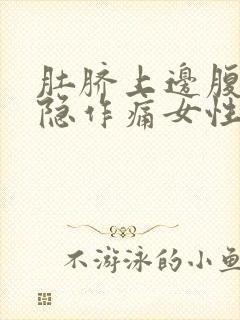 肚脐上邊腹
隐作痛女性
不游泳的小鱼